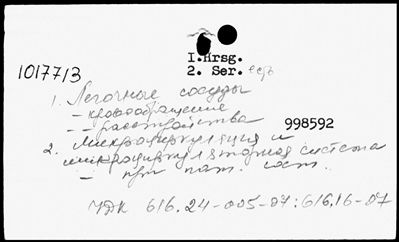 I.Hrsg.
2. Ser. есть
10177/3
1. Легочные сосуды
- кровообращение
- - расстройства
998592
2. Микроциркуляция и
микроциркуляторная система
- при пат. сост.
УДК 616.24-005-07:616.16-07